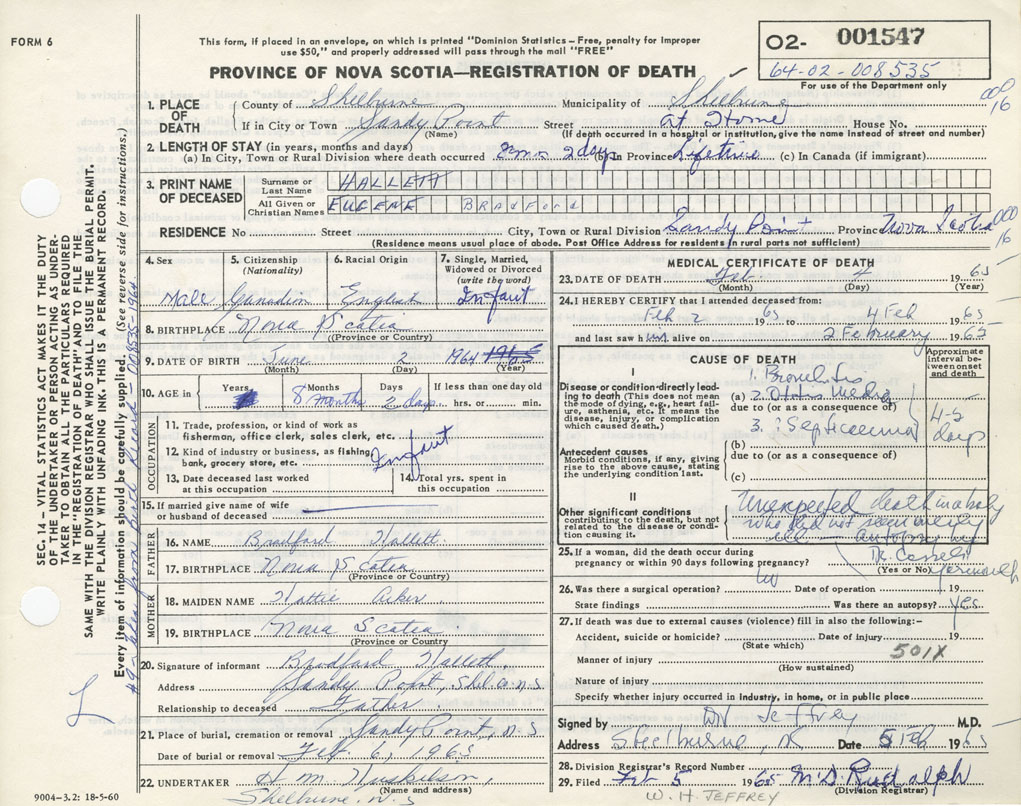 FORM 6
This form, if placed in an envelope, on which is printed "Dominion Statistics – Free, penalty for improper
use $50," and properly addressed will pass through the mail "FREE"
PROVINCE OF NOVA SCOTIA—REGISTRATION OF DEATH
O2- 001547
64-02-008535
For use of the Department only
SEC. 14 – VITAL STATISTICS ACT MAKES IT THE DUTY
OF THE UNDERTAKER OR PERSON ACTING AS UNDER-
TAKER TO OBTAIN ALL THE PARTICULARS REQUIRED
IN THE "REGISTRATION OF DEATH" AND TO FILE THE
SAME WITH THE DIVISION REGISTRAR WHO SHALL ISSUE THE BURIAL PERMIT.
WRITE PLAINLY WITH UNFADING INK. THIS IS A PERMANENT RECORD.
Every item of information should be carefully supplied. (See reverse side for instructions.)
1. PLACE OF DEATH
County of Shelburne Municipality of Shelburne
If in City or Town Sandy Point Street at Home House No.
(Name) (If death occurred in a hospital or institution, give the name instead of street and number)
2. LENGTH OF STAY (in years, months and days)
(a) In City, Town or Rural Division where death occurred 2 days (b) In Province Lifetime (c) In Canada (if immigrant)
3. PRINT NAME OF DECEASED
Surname or Last Name HALLETT
All Given or Christian Names EUGENE BRADFORD
RESIDENCE No Street City, Town or Rural Division Sandy Point Province Nova Scotia
(Residence means usual place of abode. Post Office Address for residents in rural parts not sufficient)
4. Sex Male
5. Citizenship (Nationality) Canadian
6. Racial Origin English
7. Single, Married, Widowed or Divorced (write the word) Infant
8. BIRTHPLACE Nova Scotia
(Province or Country)
9. DATE OF BIRTH June 2 1964
(Month) (Day) (Year)
10. AGE in Years Months Days If less than one day old
8 months 2 days hrs. or min.
OCCUPATION
11. Trade, profession, or kind of work as
fisherman, office clerk, sales clerk, etc.
12. Kind of industry or business, as fishing,
bank, grocery store, etc. Infant
13. Date deceased last worked
at this occupation
14. Total yrs. spent in
this occupation
15. If married give name of wife
or husband of deceased
FATHER
16. NAME Bradford Hallett
17. BIRTHPLACE Nova Scotia
(Province or Country)
MOTHER
18. MAIDEN NAME Hattie Acker
19. BIRTHPLACE Nova Scotia
(Province or Country)
20. Signature of informant Bradford Hallett
Address Sandy Point, Shel Co. N.S
Relationship to deceased Father
21. Place of burial, cremation or removal Sandy Point, N.S
Date of burial or removal Feb. 6, 1965
22. UNDERTAKER H M Huskilson,
(Name and address)
Shelburne, N.S
9004-3.2: 18-5-60
MEDICAL CERTIFICATE OF DEATH
23. DATE OF DEATH Feb 4 1965
(Month) (Day) (Year)
24. I HEREBY CERTIFY that I attended deceased from:
Feb 2 1965 to 4 Feb 1965
and last saw him alive on 2 February 1965
CAUSE OF DEATH
Approximate interval between onset and death
I
Disease or condition directly leading to death (This does not mean the mode of dying, e.g., heart failure, asthenia, etc. It means the disease, injury, or complication which caused death.)
1. Bronchitis
(a) 2. Otitis Media
due to (or as a consequence of)
3. ? Septicaemia
4-5 days
(b)
due to (or as a consequence of)
(c)
Antecedent causes
Morbid conditions, if any, giving rise to the above cause, stating the underlying condition last.
II
Other significant conditions
contributing to the death, but not related to the disease or condition causing it.
Unexpected death in a baby
who did not seem
ill — autopsy by
Dr.
25. If a woman, did the death occur during
pregnancy or within 90 days following pregnancy?
(Yes or No) Yarmouth
26. Was there a surgical operation? Date of operation 19
State findings Was there an autopsy? Yes
27. If death was due to external causes (violence) fill in also the following:-
Accident, suicide or homicide? Date of injury 19
(State which) 501X
Manner of injury
(How sustained)
Nature of injury
Specify whether injury occurred in industry, in home, or in public place
Signed by W Jeffrey M.D.
Address Shelburne, NS Date 5 Feb 1965
28. Division Registrar's Record Number
29. Filed Feb 5 1965 M.D. Rudolph
(Division Registrar)
W. H. JEFFREY